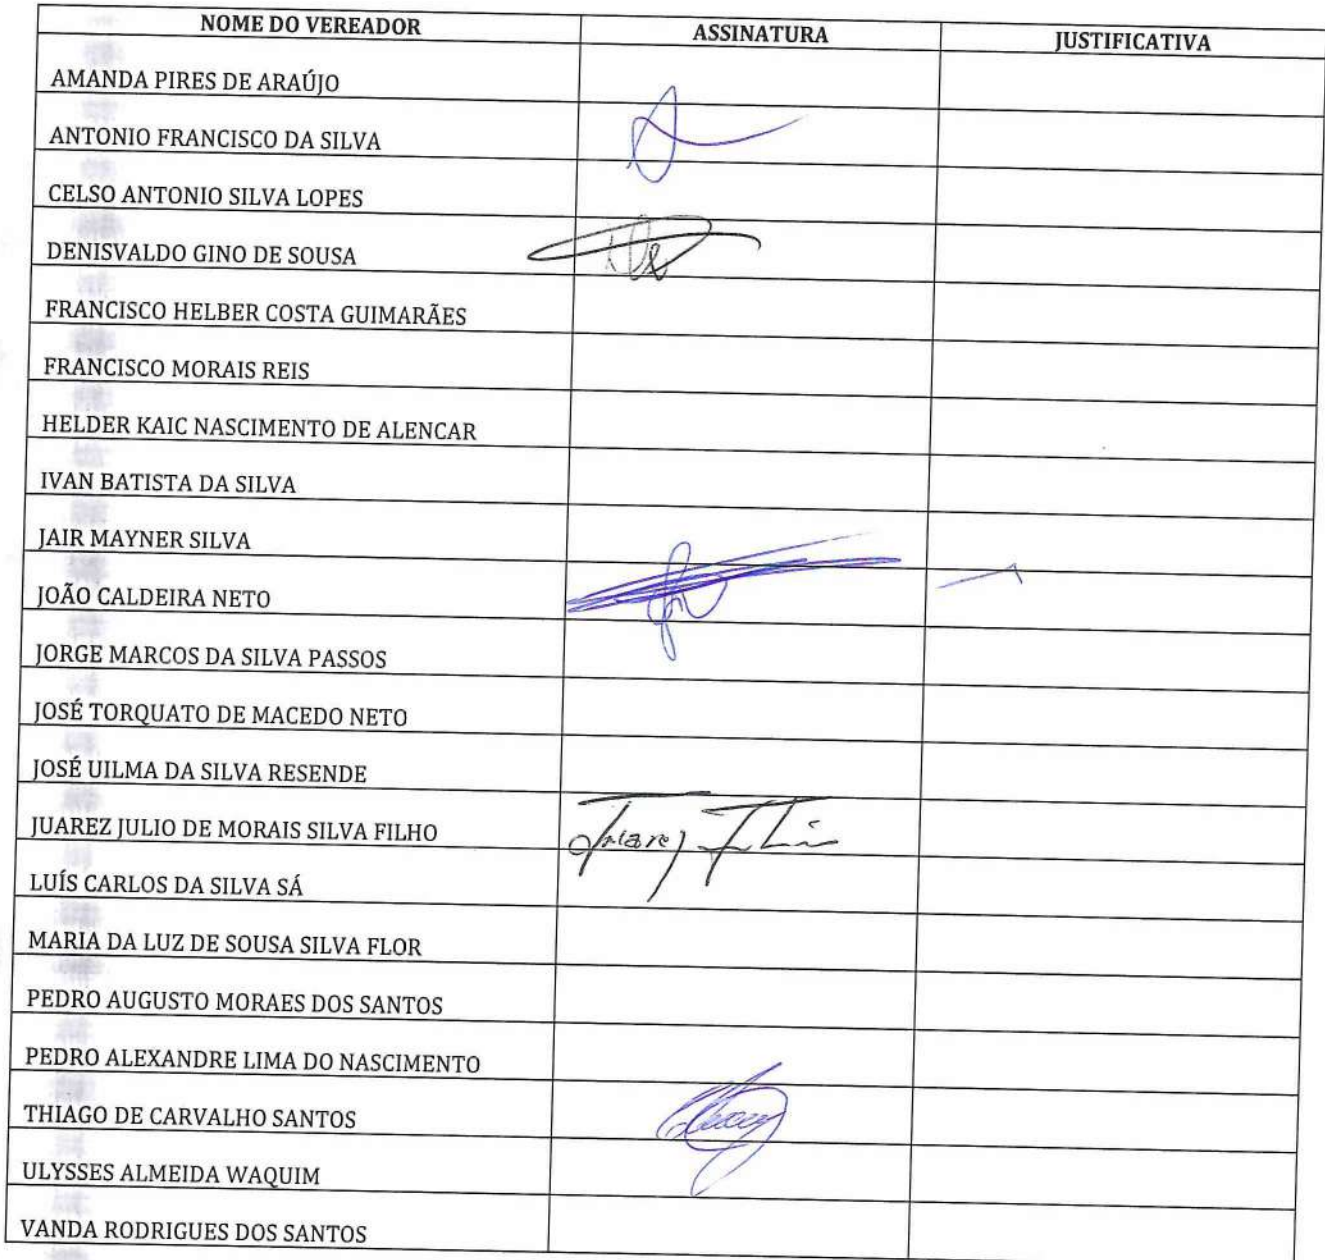 NOME DO VEREADOR ASSINATURA JUSTIFICATIVA
AMANDA PIRES DE ARAÚJO
ANTONIO FRANCISCO DA SILVA
CELSO ANTONIO SILVA LOPES
DENISVALDO GINO DE SOUSA
FRANCISCO HELBER COSTA GUIMARÃES
FRANCISCO MORAIS REIS
HELDER KAIC NASCIMENTO DE ALENCAR
IVAN BATISTA DA SILVA
JAIR MAYNER SILVA
JOÃO CALDEIRA NETO
JORGE MARCOS DA SILVA PASSOS
JOSÉ TORQUATO DE MACEDO NETO
JOSÉ UILMA DA SILVA RESENDE
JUAREZ JULIO DE MORAIS SILVA FILHO Juarez Filho
LUÍS CARLOS DA SILVA SÁ
MARIA DA LUZ DE SOUSA SILVA FLOR
PEDRO AUGUSTO MORAES DOS SANTOS
PEDRO ALEXANDRE LIMA DO NASCIMENTO
THIAGO DE CARVALHO SANTOS
ULYSSES ALMEIDA WAQUIM
VANDA RODRIGUES DOS SANTOS